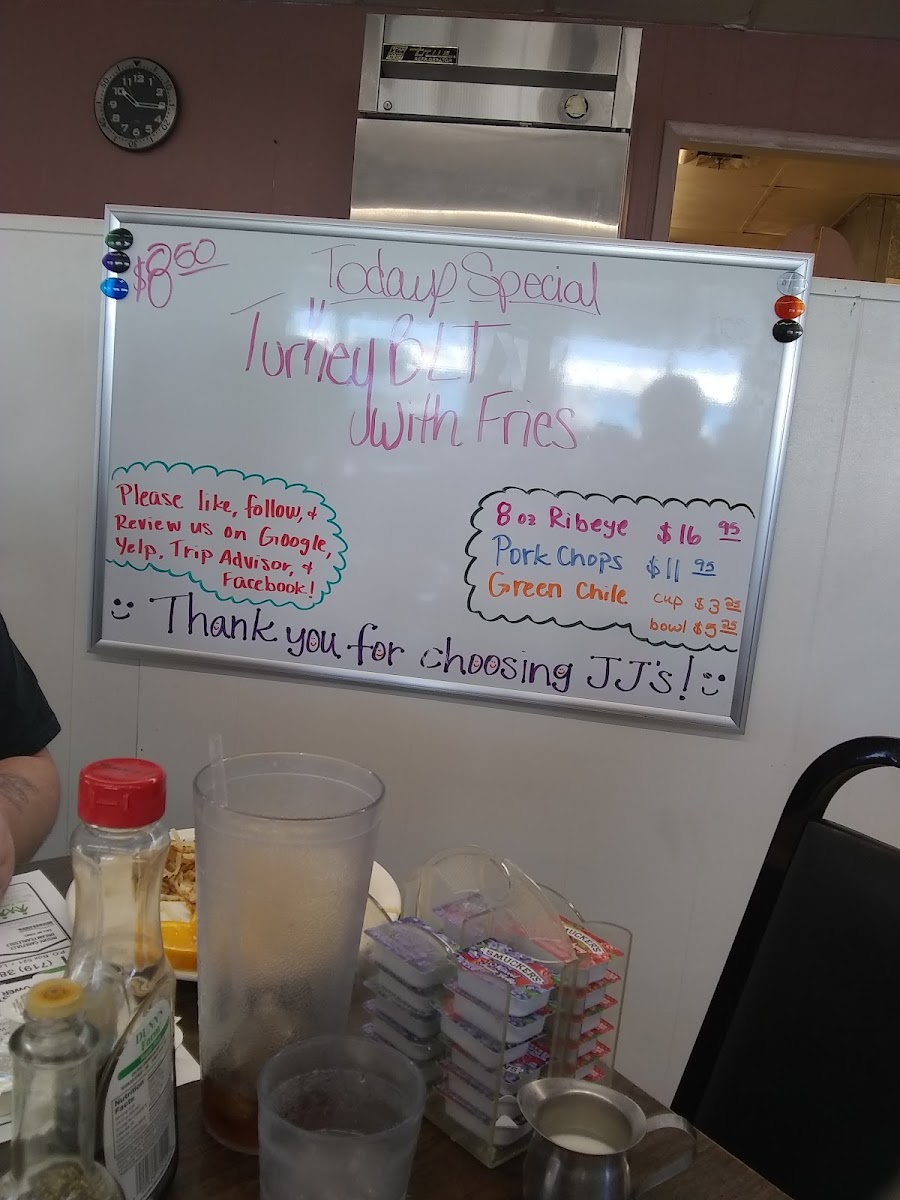 12
$8 50
Today's Special
"Turkey BLT
with Fries
Please like, follow, +
Review us on Google,
Yelp, Trip Advisor, +
Facebook!
8 oz Ribeye $16 95
Pork Chops $11 95
Green Chile cup $3 25
bowl $5 25
Thank you for choosing JJ's!
SMUCKER'S
(719) 38
Nutrition
Facts